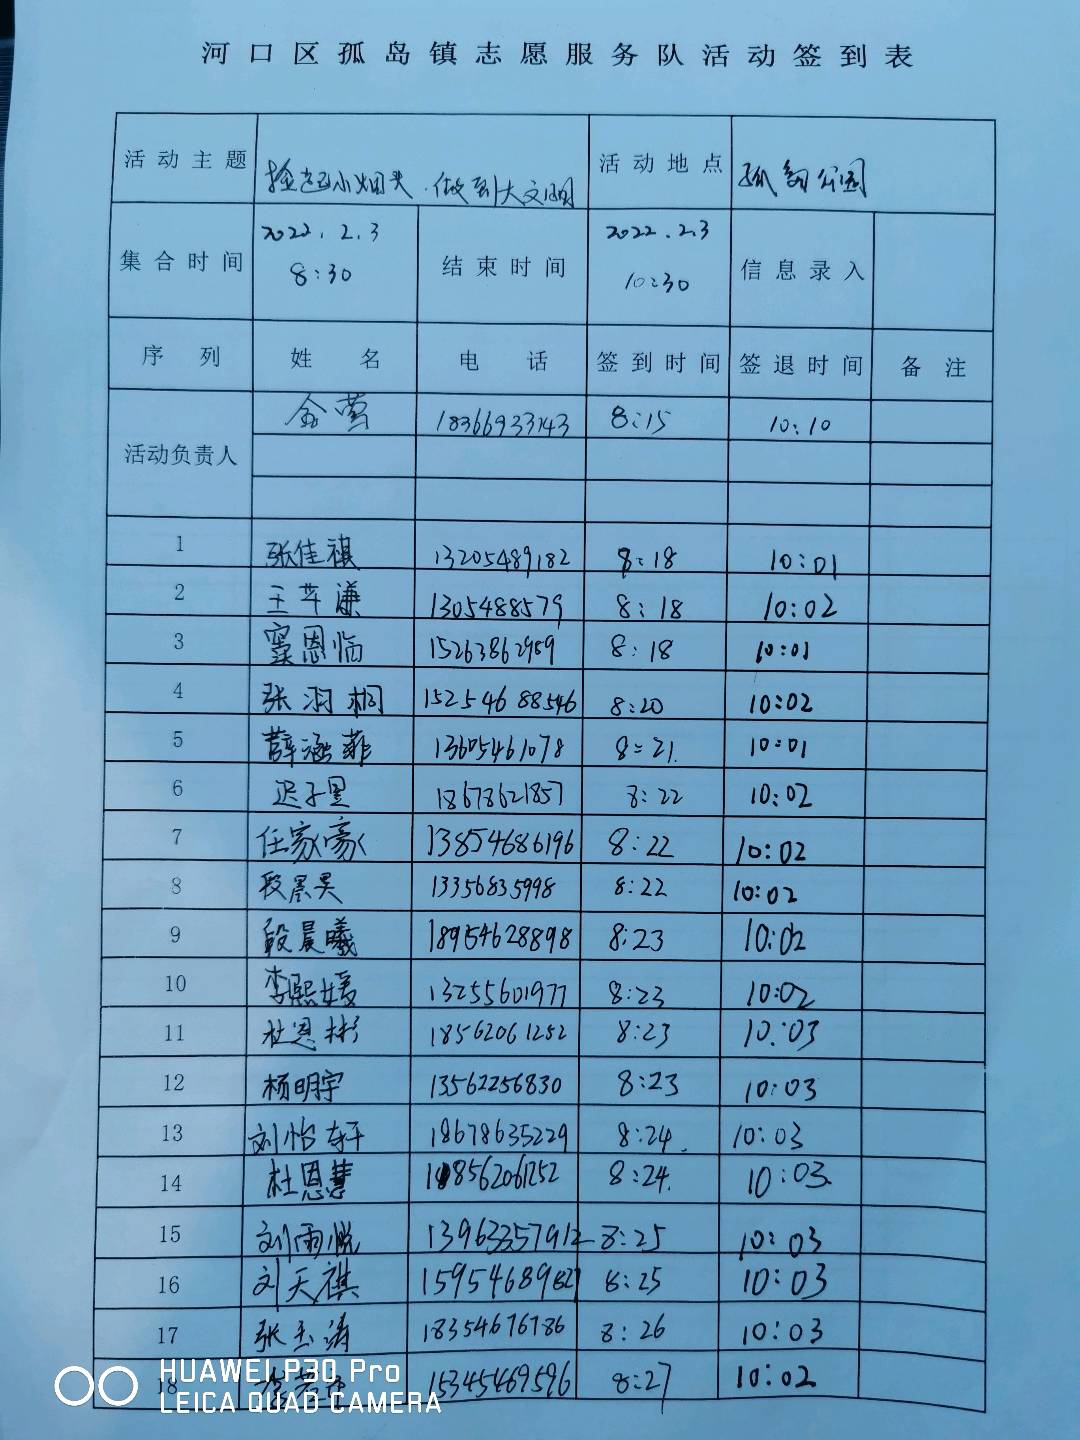 河口区孤岛镇志愿服务队活动签到表
活动主题 捡起小烟头.做到大文明 活动地点 孤韵公园
集合时间 2022.2.3 8:30 结束时间 2022.2.3 10:30 信息录入
序列 姓名 电话 签到时间 签退时间 备注
活动负责人 金莺 18366933143 8:15 10:10
1 张佳祺 13205489182 8:18 10:01
2 王芊谦 1305488579 8:18 10:02
3 窦恩临 15263862989 8:18 10:01
4 张羽桐 15254688546 8:20 10:02
5 薛涵菲 13605461078 8:21. 10:01
6 迟子墨 18678621857 8:22 10:02
7 任家豪 13854686196 8:22 10:02
8 段景昊 13356835998 8:22 10:02
9 段晨曦 18954628898 8:23 10:02
10 李熙媛 13255601977 8:23 10:02
11 杜恩彬 18562061252 8:23 10:03
12 杨明宇 13562256830 8:23 10:03
13 刘怡轩 18678635229 8:24. 10:03
14 杜恩慧 18562061252 8:24. 10:03.
15 刘雨悦 13963357912 8:25 10:03
16 刘天祺 15954689827 8:25 10:03
17 张玉涛 18354676786 8:26 10:03
18 15345469596 8:27 10:02
HUAWEI P30 Pro
LEICA QUAD CAMERA